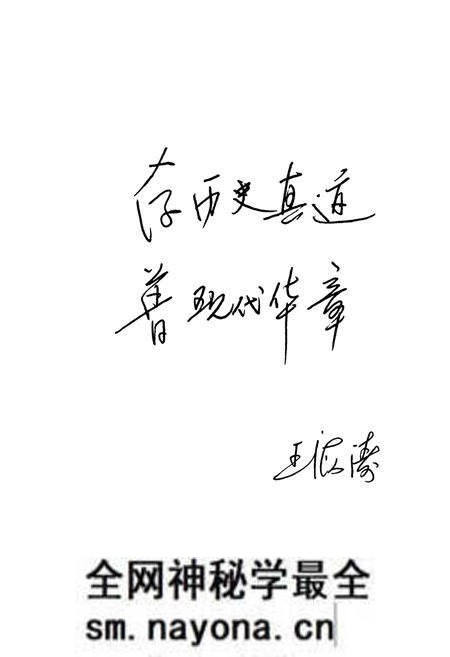 存历史真道
著现代华章
王 涛
全网神秘学最全
sm.nayona.cn